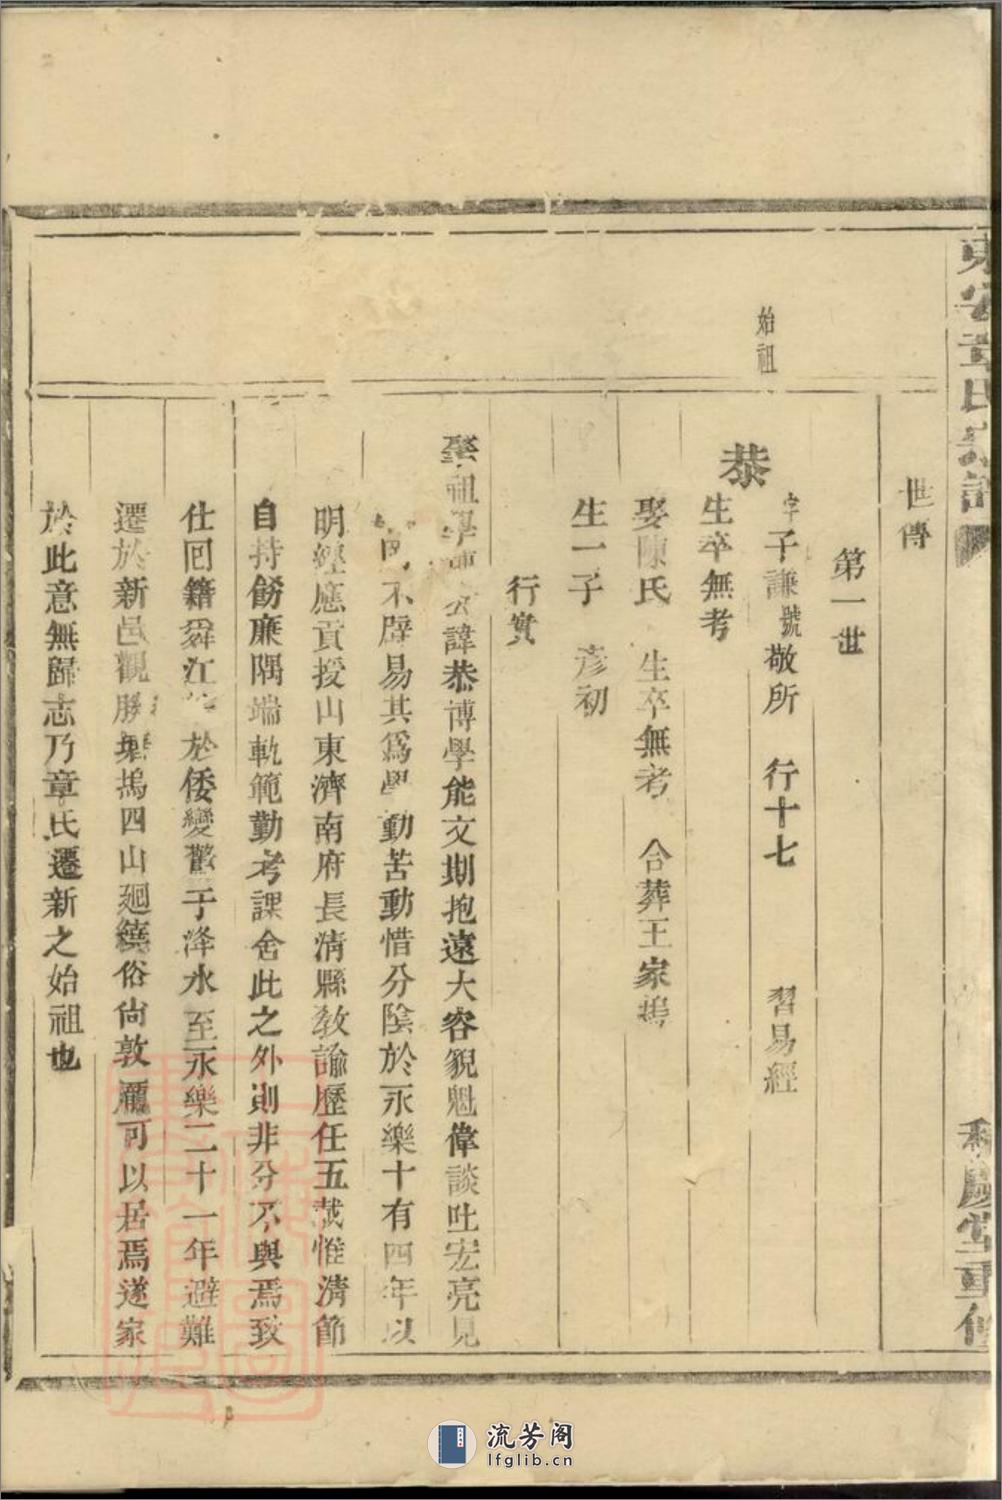 東安章氏宗譜
慶堂重修
世傳
第一世
始祖
恭
字子謙號敬所 行十七 習易經
生卒無考
娶陳氏 生卒無考 合葬王家塢
生一子 彥初
行實
鼻祖學 公諱恭博學能文期抱遠大容貌魁偉談吐宏亮見
不辟易其爲學勤苦動惜分陰於永樂十有四年以
明經應貢授山東濟南府長清縣教諭歷任五載惟清節
自持飭廉隅端軌範勤考課舍此之外則非分不與焉致
仕回籍舜江 於倭變驚于洚水至永樂二十一年避難
遷於新邑觀勝 塢四山廻繞俗尙敦龐可以居焉遂家
於此意無歸志乃章氏遷新之始祖也
流芳阁
lfglib.cn